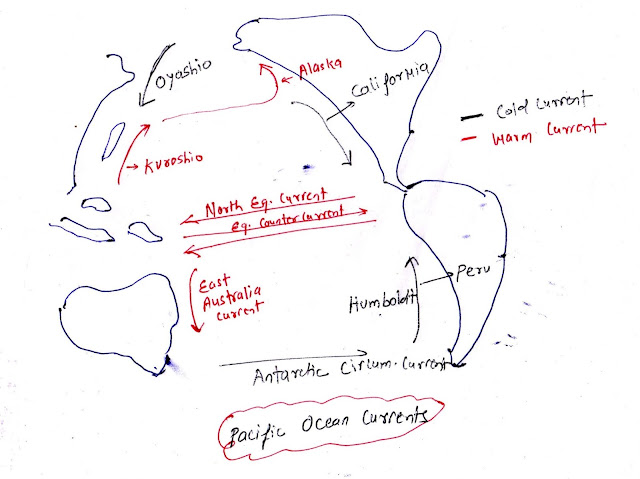 Oyashio
Alaska
California
Cold Current
Warm Current
Kuroshio
North Eq. Current
Eq. Counter Current
East
Australia
Current
Humboldt
Peru
Antarctic Circum. Current
Pacific Ocean Currents